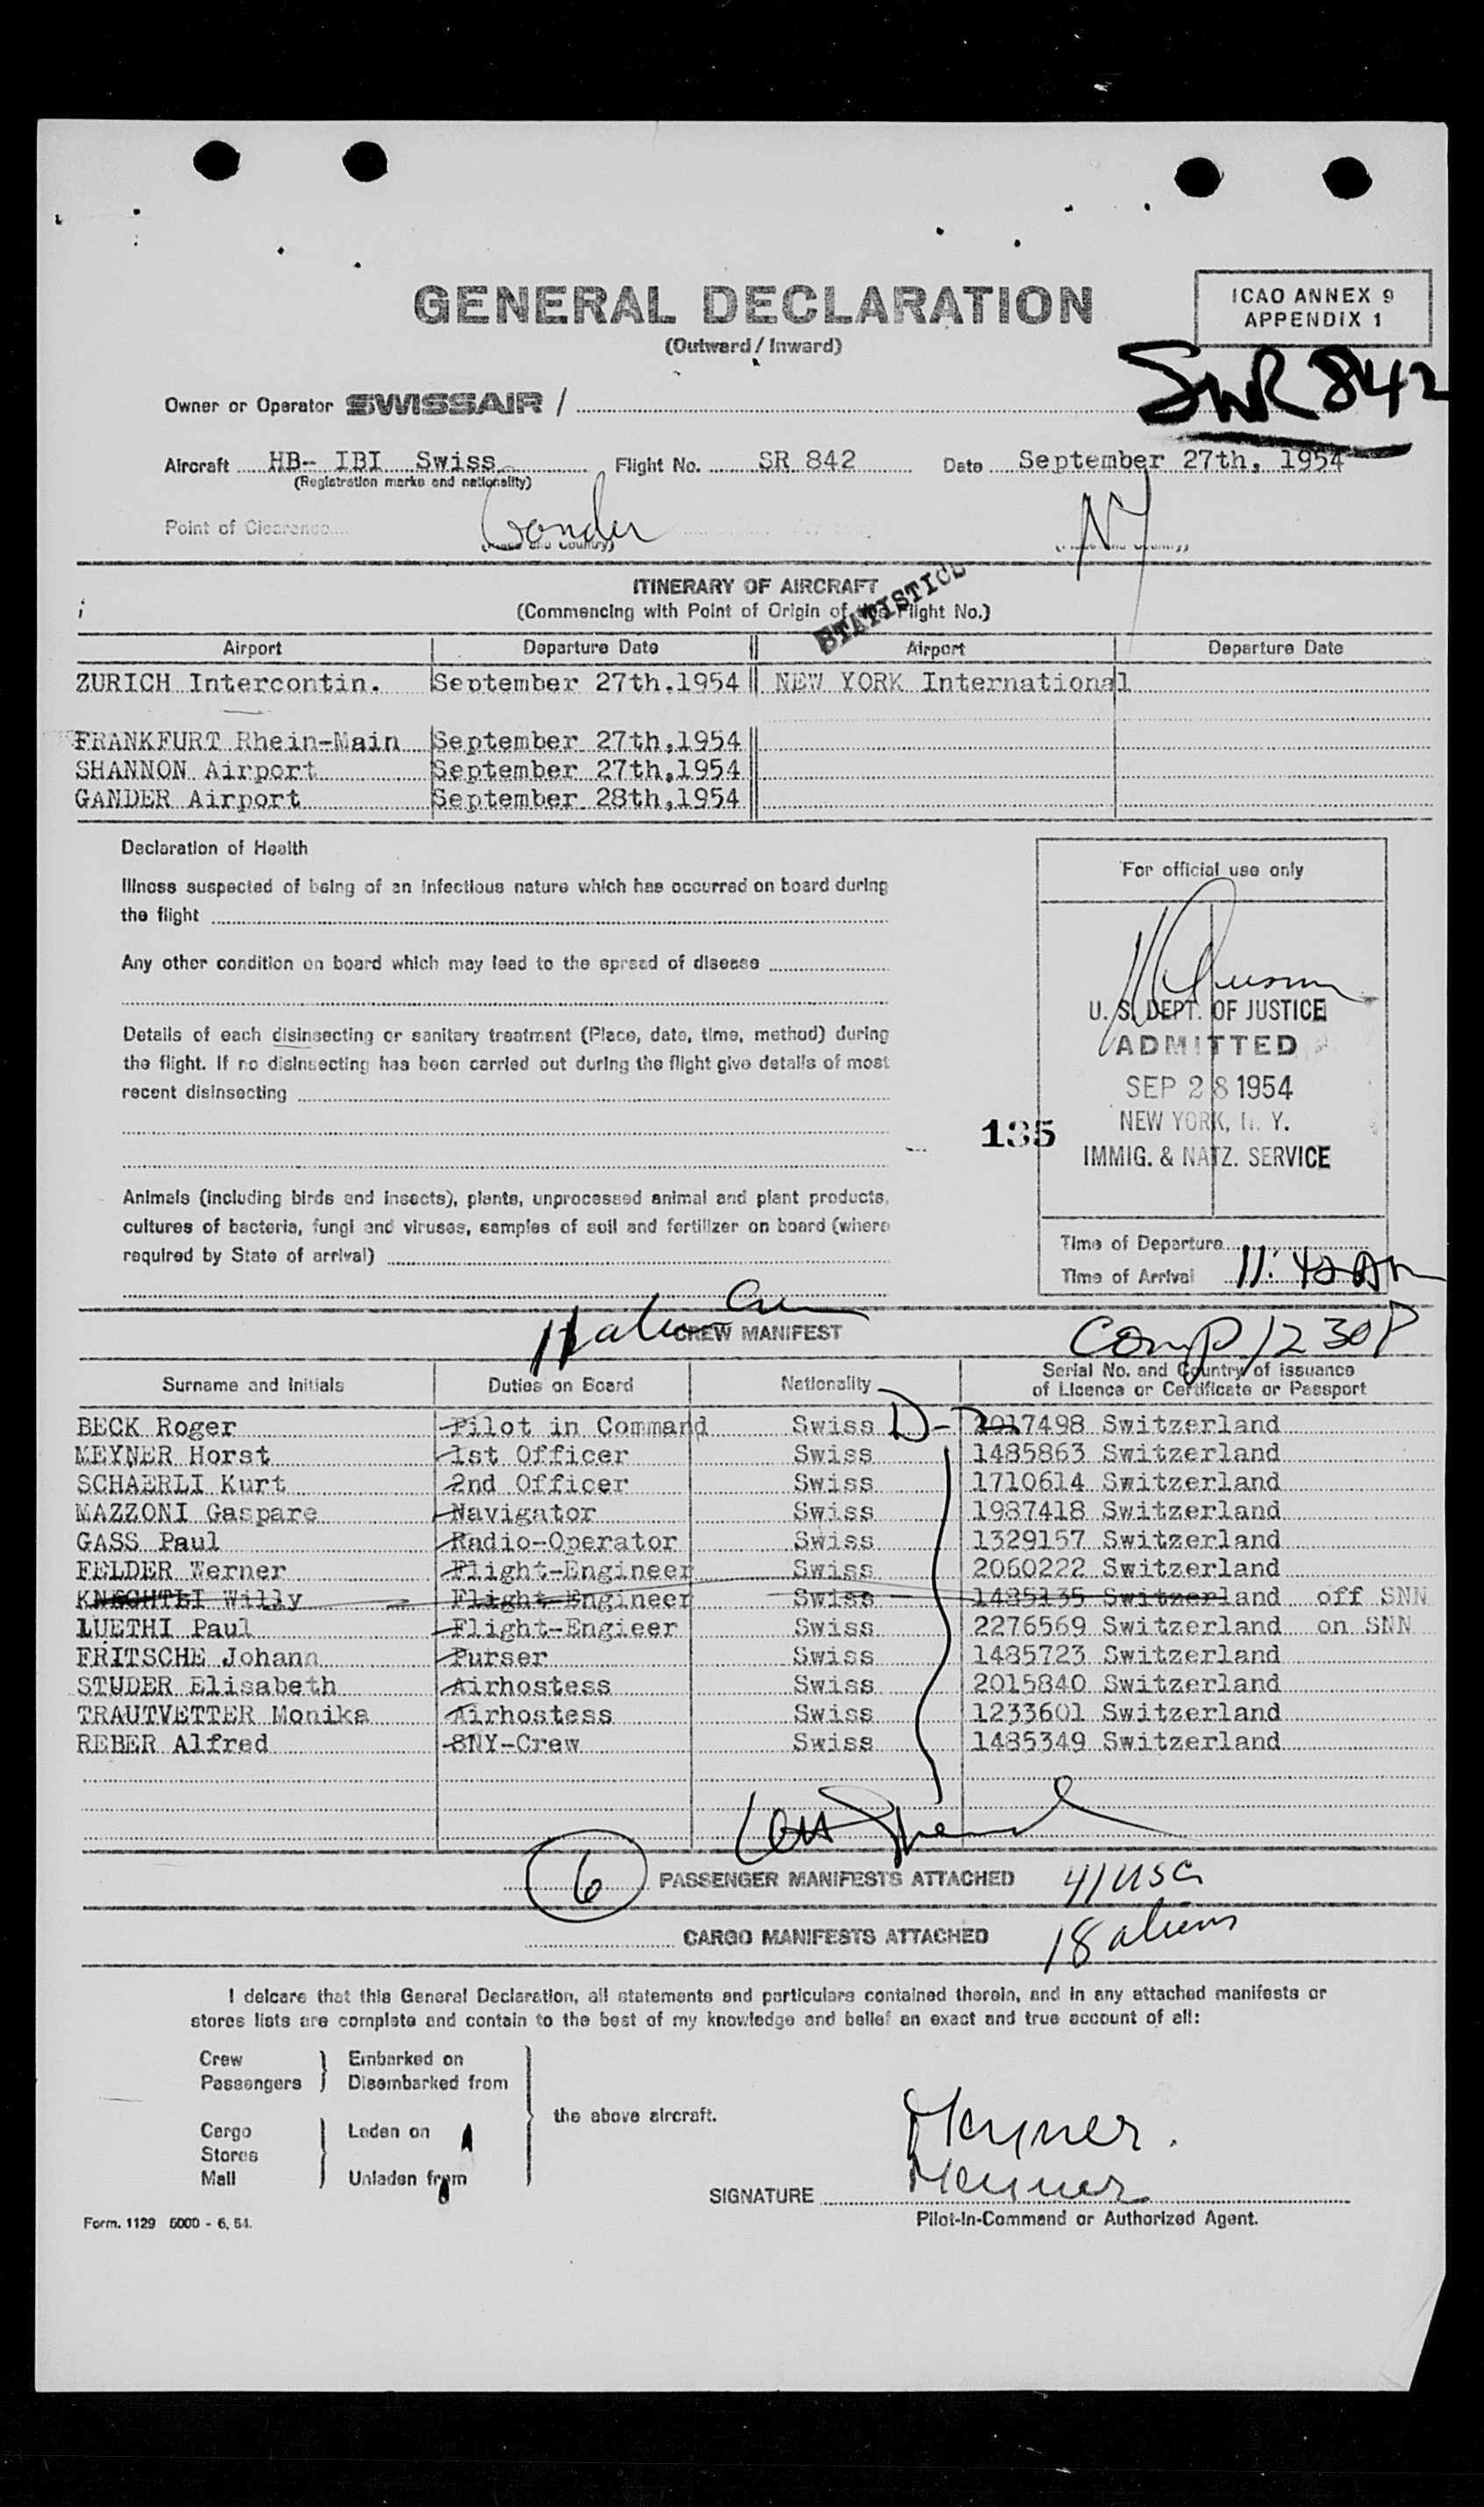 GENERAL DECLARATION
(Outward / Inward)
ICAO ANNEX 9
APPENDIX 1
SWR 842
Owner or Operator SWISSAIR /
Aircraft HB- IBI Swiss Flight No. SR 842 Date September 27th, 1954
(Registration marks and nationality)
Point of Clearance Gander NY
(Place and Country)
ITINERARY OF AIRCRAFT
(Commencing with Point of Origin of the Flight No.)
STATISTICS
Airport Departure Date Airport Departure Date
ZURICH Intercontin. September 27th.1954 NEW YORK International
FRANKFURT Rhein-Main September 27th,1954
SHANNON Airport September 27th,1954
GANDER Airport September 28th,1954
Declaration of Health
Illness suspected of being of an infectious nature which has occurred on board during
the flight
Any other condition on board which may lead to the spread of disease
Details of each disinsecting or sanitary treatment (Place, date, time, method) during
the flight. If no disinsecting has been carried out during the flight give details of most
recent disinsecting
Animals (including birds and insects), plants, unprocessed animal and plant products,
cultures of bacteria, fungi and viruses, samples of soil and fertilizer on board (where
required by State of arrival)
For official use only
U. S. DEPT. OF JUSTICE
ADMITTED
SEP 28 1954
NEW YORK, N. Y.
IMMIG. & NATZ. SERVICE
135
Time of Departure
Time of Arrival 11:42 AM
11 alien Crew
CREW MANIFEST
Comp 12 30P
Surname and Initials Duties on Board Nationality Serial No. and Country of issuance
of Licence or Certificate or Passport
BECK Roger Pilot in Command Swiss D- 2017498 Switzerland
MEYNER Horst 1st Officer Swiss 1485863 Switzerland
SCHAERLI Kurt 2nd Officer Swiss 1710614 Switzerland
MAZZONI Gaspare Navigator Swiss 1987418 Switzerland
GASS Paul Radio-Operator Swiss 1329157 Switzerland
FELDER Werner Flight-Engineer Swiss 2060222 Switzerland
KNECHTLI Willy Flight-Engineer Swiss 1485135 Switzerland off SNN
LUETHI Paul Flight-Engieer Swiss 2276569 Switzerland on SNN
FRITSCHE Johann Purser Swiss 1485723 Switzerland
STUDER Elisabeth Airhostess Swiss 2015840 Switzerland
TRAUTVETTER Monika Airhostess Swiss 1233601 Switzerland
REBER Alfred SNY-Crew Swiss 1485349 Switzerland
6 PASSENGER MANIFESTS ATTACHED 41 USC
CARGO MANIFESTS ATTACHED 18 aliens
I delcare that this General Declaration, all statements and particulars contained therein, and in any attached manifests or
stores lists are complete and contain to the best of my knowledge and belief an exact and true account of all:
Crew Embarked on
Passengers Disembarked from
the above aircraft.
Cargo Laden on
Stores
Mail Unladen from
Meyner.
SIGNATURE Meyner
Pilot-in-Command or Authorized Agent.
Form. 1129 5000 - 6. 54.